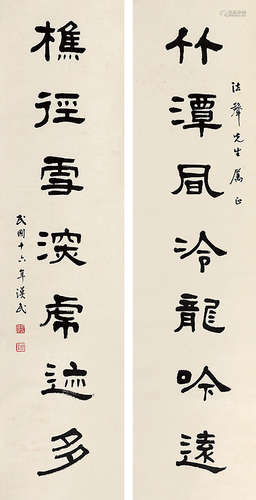 法聲先生屬正
竹潭凬冷龍吟遠
樵徑雪深虎迹多
民國十六年漢民